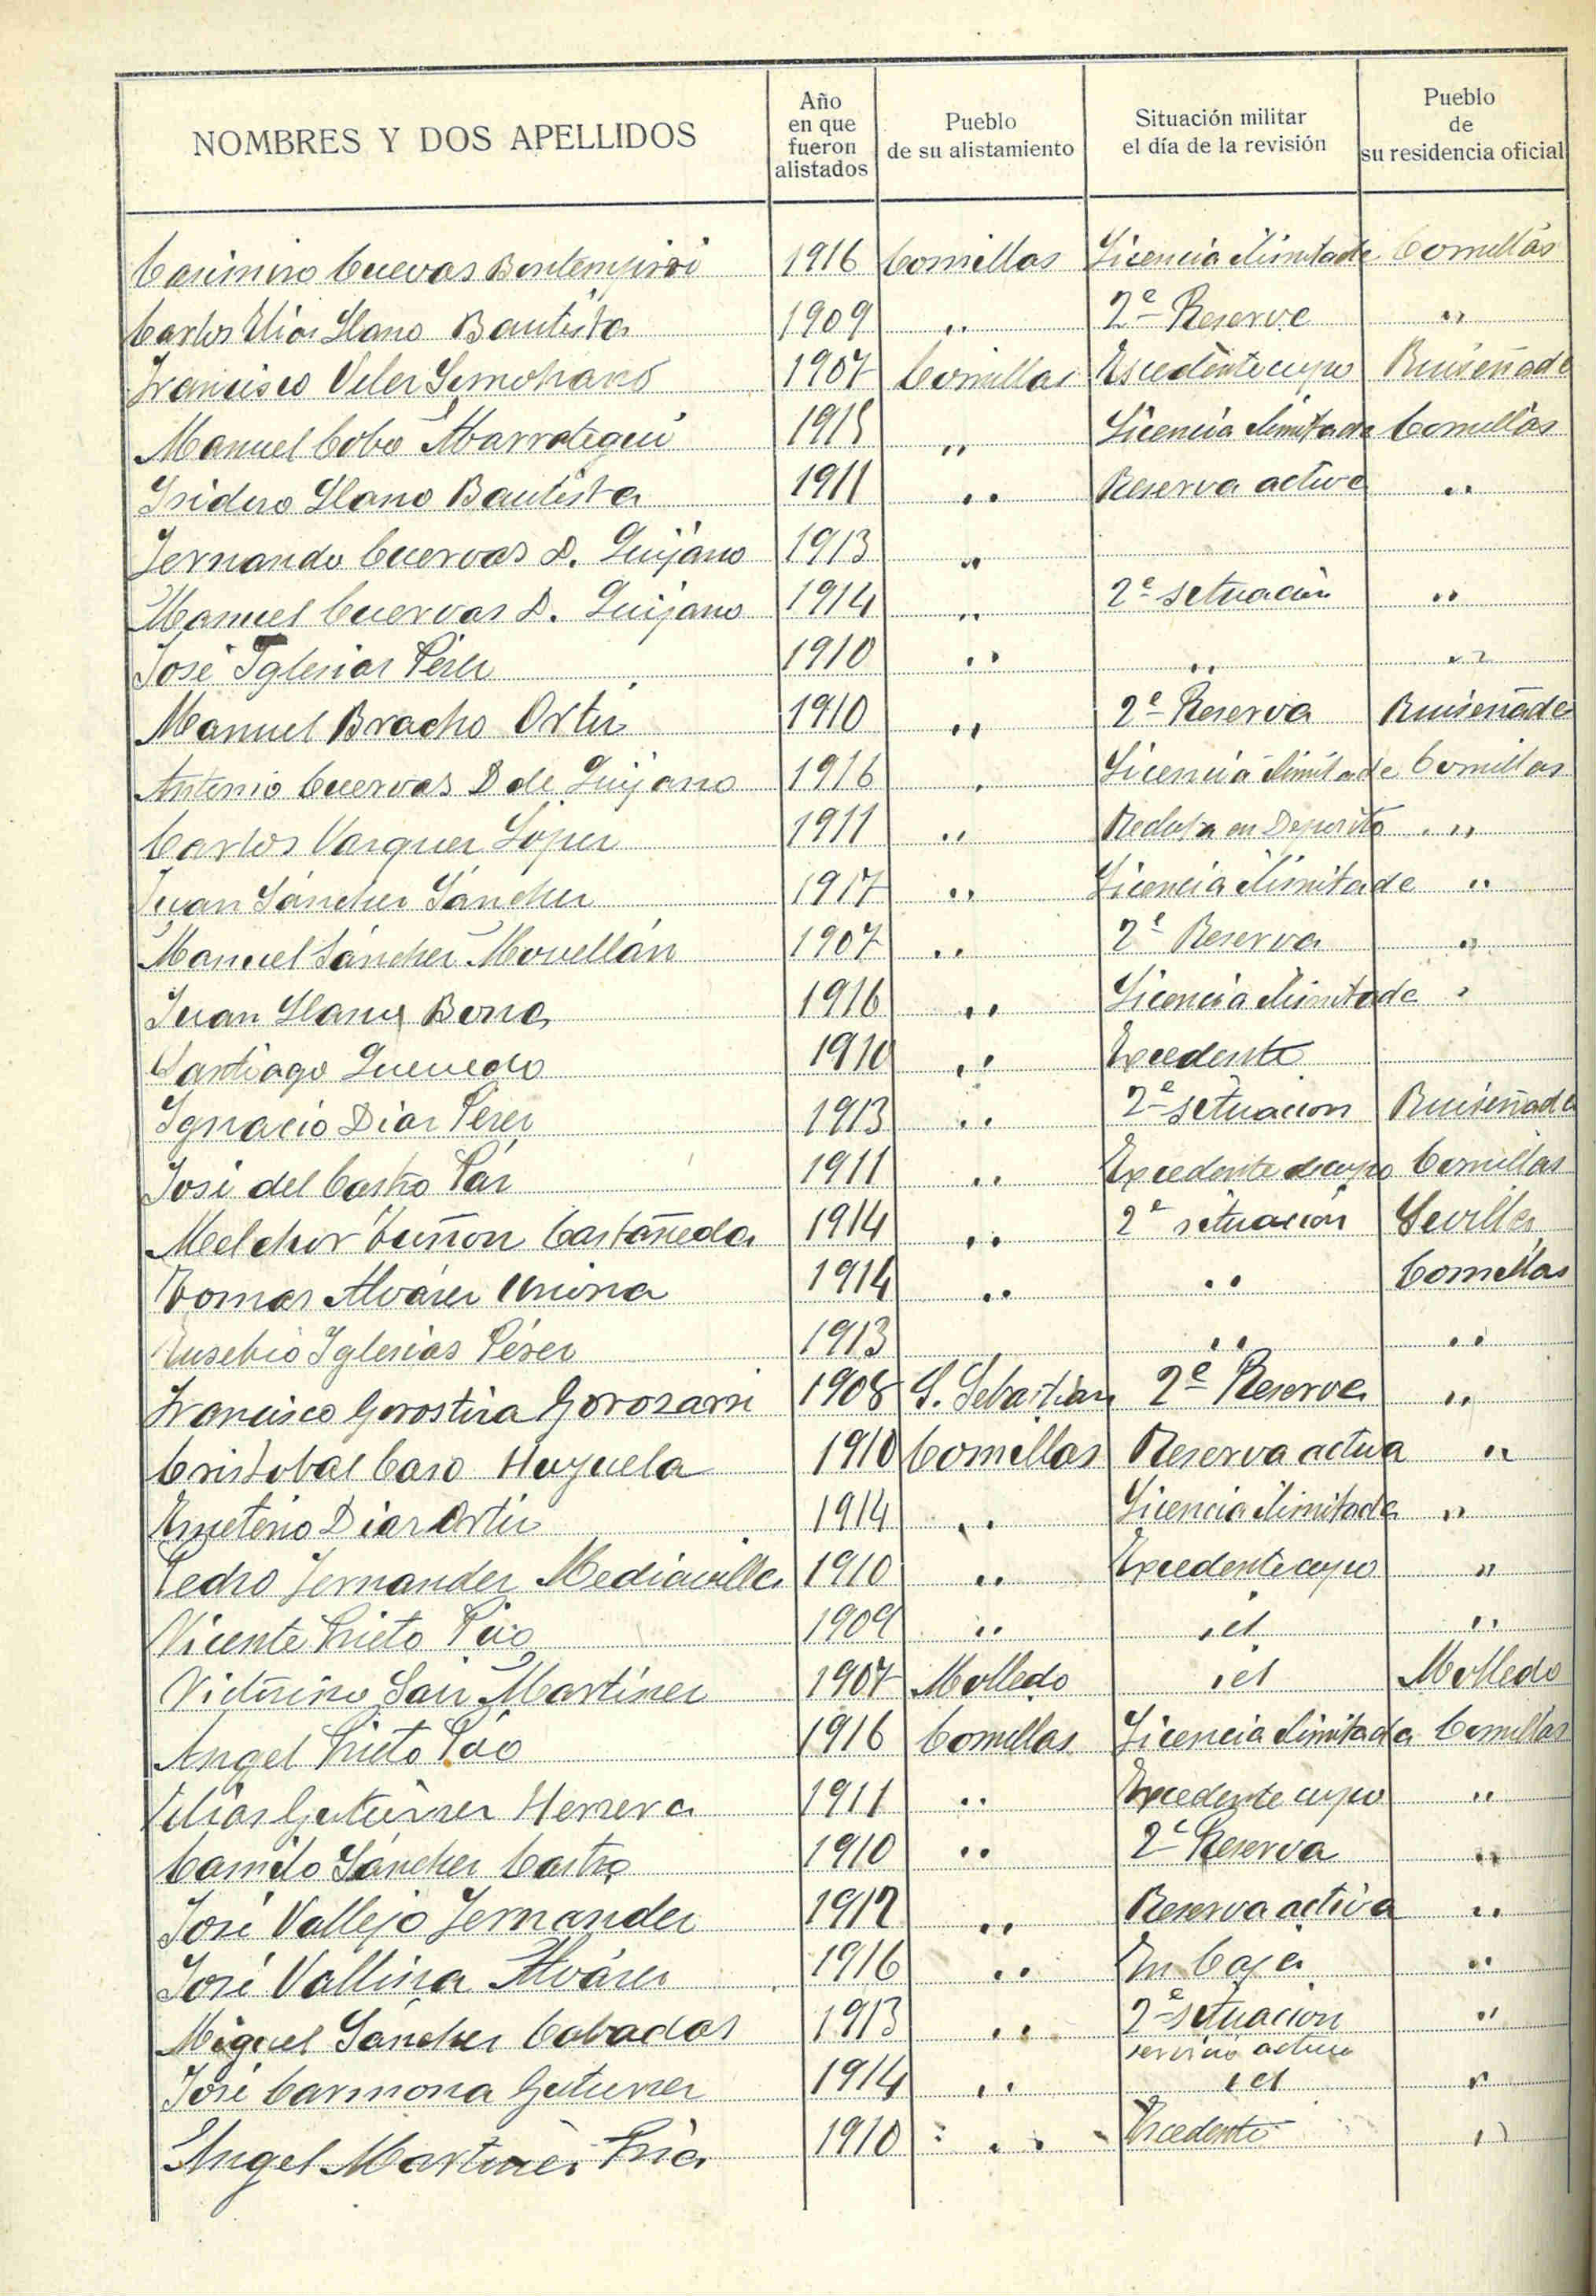 NOMBRES Y DOS APELLIDOS
Año en que fueron alistados
Pueblo de su alistamiento
Situación militar el día de la revisión
Pueblo de su residencia oficial
Casimiro Cuevas 1916 Comillas Licencia ilimitada Comillas
Carlos Elías Llano Bautista 1909 " 2ª Reserva "
Francisco Velez 1907 Comillas Excedente cupo Ruiseñada
Manuel Cobo Abarrategui 1915 " Licencia ilimitada Comillas
Isidero Llano Bautista 1911 " Reserva activa "
Fernando Cuervas D. Quijano 1913 "
Manuel Cuervas D. Quijano 1914 " 2ª situación "
José Iglesias Pérez 1910 " " "
Manuel Bracho Ortiz 1910 " 2ª Reserva Ruiseñada
Antonio Cuervas D de Quijano 1916 " Licencia ilimitada Comillas
Carlos Vazquez López 1911 " Recluta en Deposito "
Juan Sánchez Sánchez 1917 " Licencia ilimitada "
Manuel Sánchez Movellán 1907 " 2ª Reserva "
Juan Llanes 1916 " Licencia ilimitada "
Santiago Quevedo 1910 " Excedente
Ignacio Diaz Pérez 1913 " 2ª situacion Ruiseñada
José del Castro 1911 " Excedente de cupo Comillas
Melchor Tuñon Castañeda 1914 " 2ª situación Sevilla
Tomas Alvárez 1914 " " Comillas
Eusebio Iglesias Pérez 1913 " "
Francisco Gorostiza Gorozarri 1908 S. Sebastian 2ª Reserva "
Cristobal Caso Huyuela 1910 Comillas Reserva activa "
Emeterio Diaz Ortiz 1914 " Licencia ilimitada "
Pedro Fernandez Mediavilla 1910 " Excedente cupo "
Vicente Prieto 1909 " id "
Victorino Saiz Martínez 1907 Molledo id Molledo
Angel Prieto 1916 Comillas Licencia ilimitada Comillas
Elías Gutiérrez Herrera 1911 " Excedente cupo "
Camilo Sánchez Castro 1910 " 2ª Reserva "
José Vallejo Fernandez 1912 " Reserva activa "
José Vallina Alvárez 1916 " En Caja "
Miguel Sánchez Cobadas 1913 " 2ª situacion "
servicio activo
José Carmona Gutierrez 1914 " id "
Angel Martinez 1910 " Excedente "